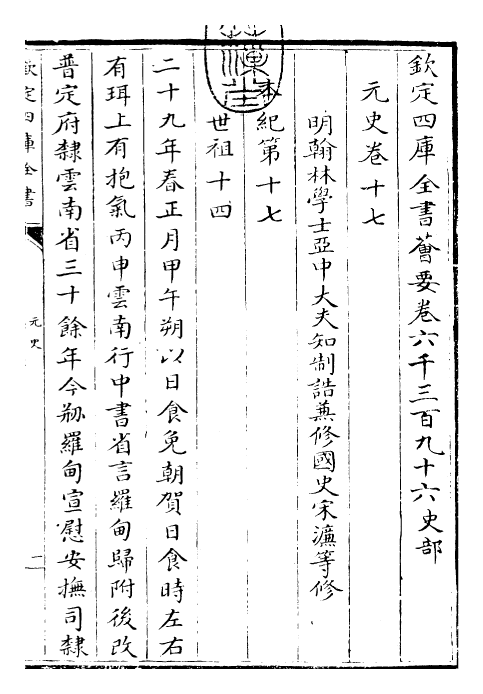 欽定四庫全書薈要卷六千三百九十六史部
元史卷十七
明翰林學士亞中大夫知制誥兼修國史宋濂等修
本紀第十七
世祖十四
二十九年春正月甲午朔以日食免朝賀日食時左右
有珥上有抱氣丙申雲南行中書省言羅甸歸附後改
普定府隸雲南省三十餘年今刱羅甸宣慰安撫司隸
欽定四庫全書
元史